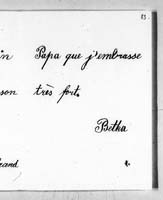 83
in Papa que j'embrasse
son très fort.
Betka
rand